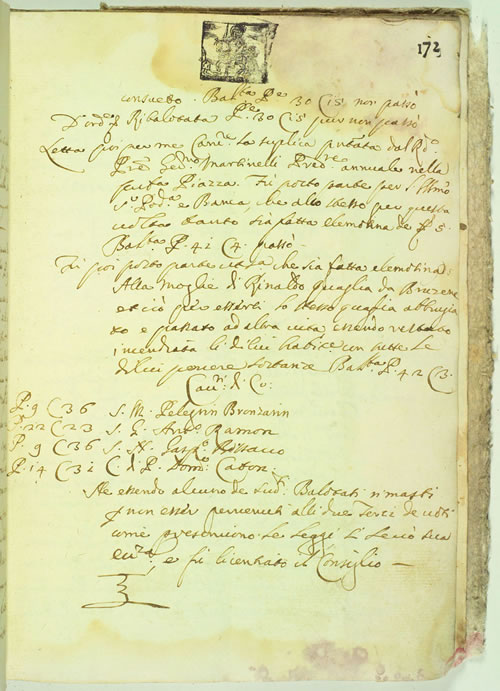 172
consueto. Ball.ta P.e 30 C 15 non passò
D'ord.e Ribalotata P.e 30 C 15 pur non passò
Letta poi per me Canc.re la suplica del R.do
P.re Martinelli Pred.re annuale nella
Piazza. Fù posto parte per
S.r Pod.à e Banca, che allo stesso per questa
volta tanto sia fatta elemosina de 5.
Ball.ta P. 41 C 4. passò.
Fù poi posto parte che sia fatta elemosina
Alla Moglie di Rinaldo quaglia da
et ciò per essersi lo stesso quaglia abbrugia
to e passato ad altra vita, essendo restata
incendiata la di lui con tutte le
di lui povere sostanze Ball.ta P. 42 C 3.
di Co:
P. 9 C 36 S. M. Pelegrin Bronzarin
P. 22 C 23 S. Ant.o Ramon
P. 9 C 36 S. Gasp.o
P. 14 C 31 C. d. P. Dom.o
Ne essendo alcuno de sud.i Balotati rimasti
per non esser pervenuti alli due Terzi de voti
come prescrivono le Leggi si levò sua
e fù licentiato il Consiglio —